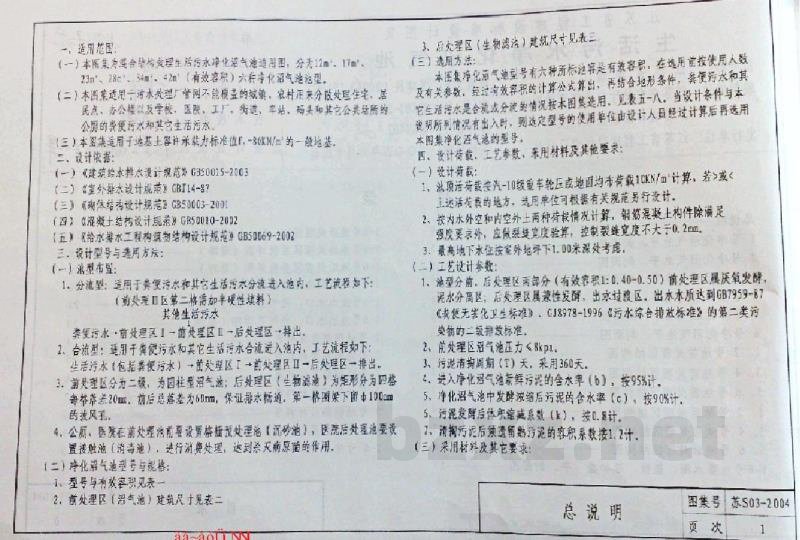 一、适用范围:
(一)本图集为混合结构处理生活污水净化沼气池通用图, 分为12m³、17m³、
23m³、28m³、34m³、42m³ (有效容积) 六种净化沼气池池型。
(二)本图集适用于污水处理厂管网不能覆盖的城镇、农村用来分散处理住宅、居
民点、办公楼以及学校、医院、工厂、街道、车站、码头和其它公共场所的
公厕的粪便污水和其它生活污水。
(三)本图集适用于地基土容许承载力标准值 80KN/m²的一般地基。
二、设计依据:
(一)《建筑给水排水设计规范》GB50015-2003
(二)《室外排水设计规范》GBJ14-87
(三)《砌体结构设计规范》GB50003-2001
(四)《混凝土结构设计规范》GB50010-2002
(五)《给水排水工程构筑物结构设计规范》GB50069-2002
三、设计型号与选用方法:
(一)池型布置:
1、分流型: 适用于粪便污水和其它生活污水分流进入池内, 工艺流程如下:
(前处理Ⅱ区第二格添加半硬性填料)
其他生活污水
粪便污水→前处理区Ⅰ→前处理区Ⅱ→后处理区→排出。
2、合流型: 适用于粪便污水和其它生活污水合流进入池内, 工艺流程如下:
生活污水(包括粪便污水)→前处理区Ⅰ→前处理区Ⅱ→后处理区→排出。
3、前处理区分为二级, 为圆柱型沼气池; 后处理区(生物滤池)为矩形分为四格
每格落差20mm, 前后总落差为60mm, 保证排水畅通, 第一格圈梁下留φ100mm
的放风孔。
4、公厕、医院在前处理池前需设置格栅预处理池【沉砂池】, 医院后处理池要设
置接触池(消毒池), 进行消毒处理, 达到杀灭病原菌的作用。
(二)净化沼气池型号与规格:
1、型号与有效容积见表一
2、前处理区(沼气池)建筑尺寸见表二
3、后处理区(生物滤池)建筑尺寸见表三
(三)选用方法:
本图集净化沼气池型号有六种所标池容是有效容积, 在选用前按使用人数
及有关参数, 经过有效容积的计算公式算出, 再结合地形条件, 粪便污水和其
它生活污水是合流或分流的情况按本图集选用, 见表五-八。当设计条件与本
说明所列情况有出入时, 则选定型号的使用单位由设计人员经过计算后再选用
本图集净化沼气池的型号。
四、设计荷载、工艺参数、采用材料及其他要求:
(一)设计荷载:
1、池顶活荷载按汽-10级重车轮压或地面均布荷载10KN/m²计算, 若>或<
上述活荷载的地方, 选用单位可根据有关规范另行设计。
2、按内水外空和内空外土两种荷载情况计算, 钢筋混凝土构件除满足
强度要求外, 应做裂缝宽度验算, 控制裂缝宽度不大于0.2mm。
3、最高地下水位按室外地坪下1.00米深处考虑。
(二)工艺设计参数:
1、池型分前、后处理区两部分(有效容积1:0.40-0.50)前处理区属厌氧发酵,
泥水分离区; 后处理区属兼性发酵, 出水过滤区, 出水水质达到GB7959-87
《粪便无害化卫生标准》、GJ8978-1996《污水综合排放标准》的第二类污
染物的二级排放标准。
2、前处理区沼气池压力≤8kpa。
3、污泥清掏周期(T)天, 采用360天。
4、进入净化沼气池新鲜污泥的含水率(b), 按95%计。
5、净化沼气池中发酵浓缩后污泥的含水率(c), 按90%计。
6、污泥发酵后体积缩减系数(k), 按0.8计。
7、清掏污泥后须遗留熟污泥的容积系数按1.2计。
(三)采用材料及其它要求:
总 说 明
图集号 苏S03-2004
页 次 1